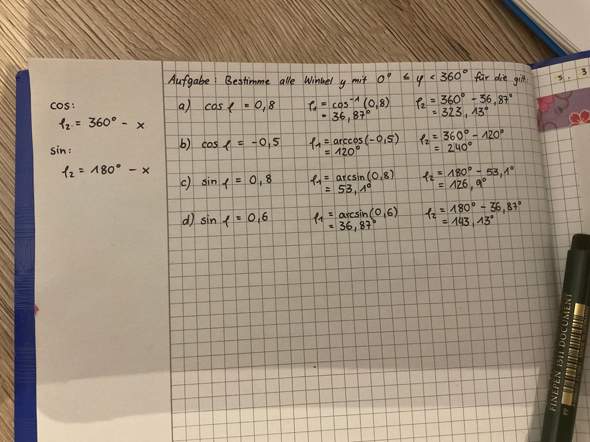 Aufgabe: Bestimme alle Winkel φ mit 0° ≤ φ < 360° für die gilt:
cos:
φ₂ = 360° - x
sin:
φ₂ = 180° - x
a) cos φ = 0,8 φ₁ = cos⁻¹ (0,8) φ₂ = 360° - 36,87°
= 36,87° = 323,13°
b) cos φ = -0,5 φ₁ = arccos(-0,5) φ₂ = 360° - 120°
= 120° = 240°
c) sin φ = 0,8 φ₁ = arcsin(0,8) φ₂ = 180° - 53,1°
= 53,1° = 126,9°
d) sin φ = 0,6 φ₁ = arcsin(0,6) φ₂ = 180° - 36,87°
= 36,87° = 143,13°
FINEPEN 1511 DOCUMENT